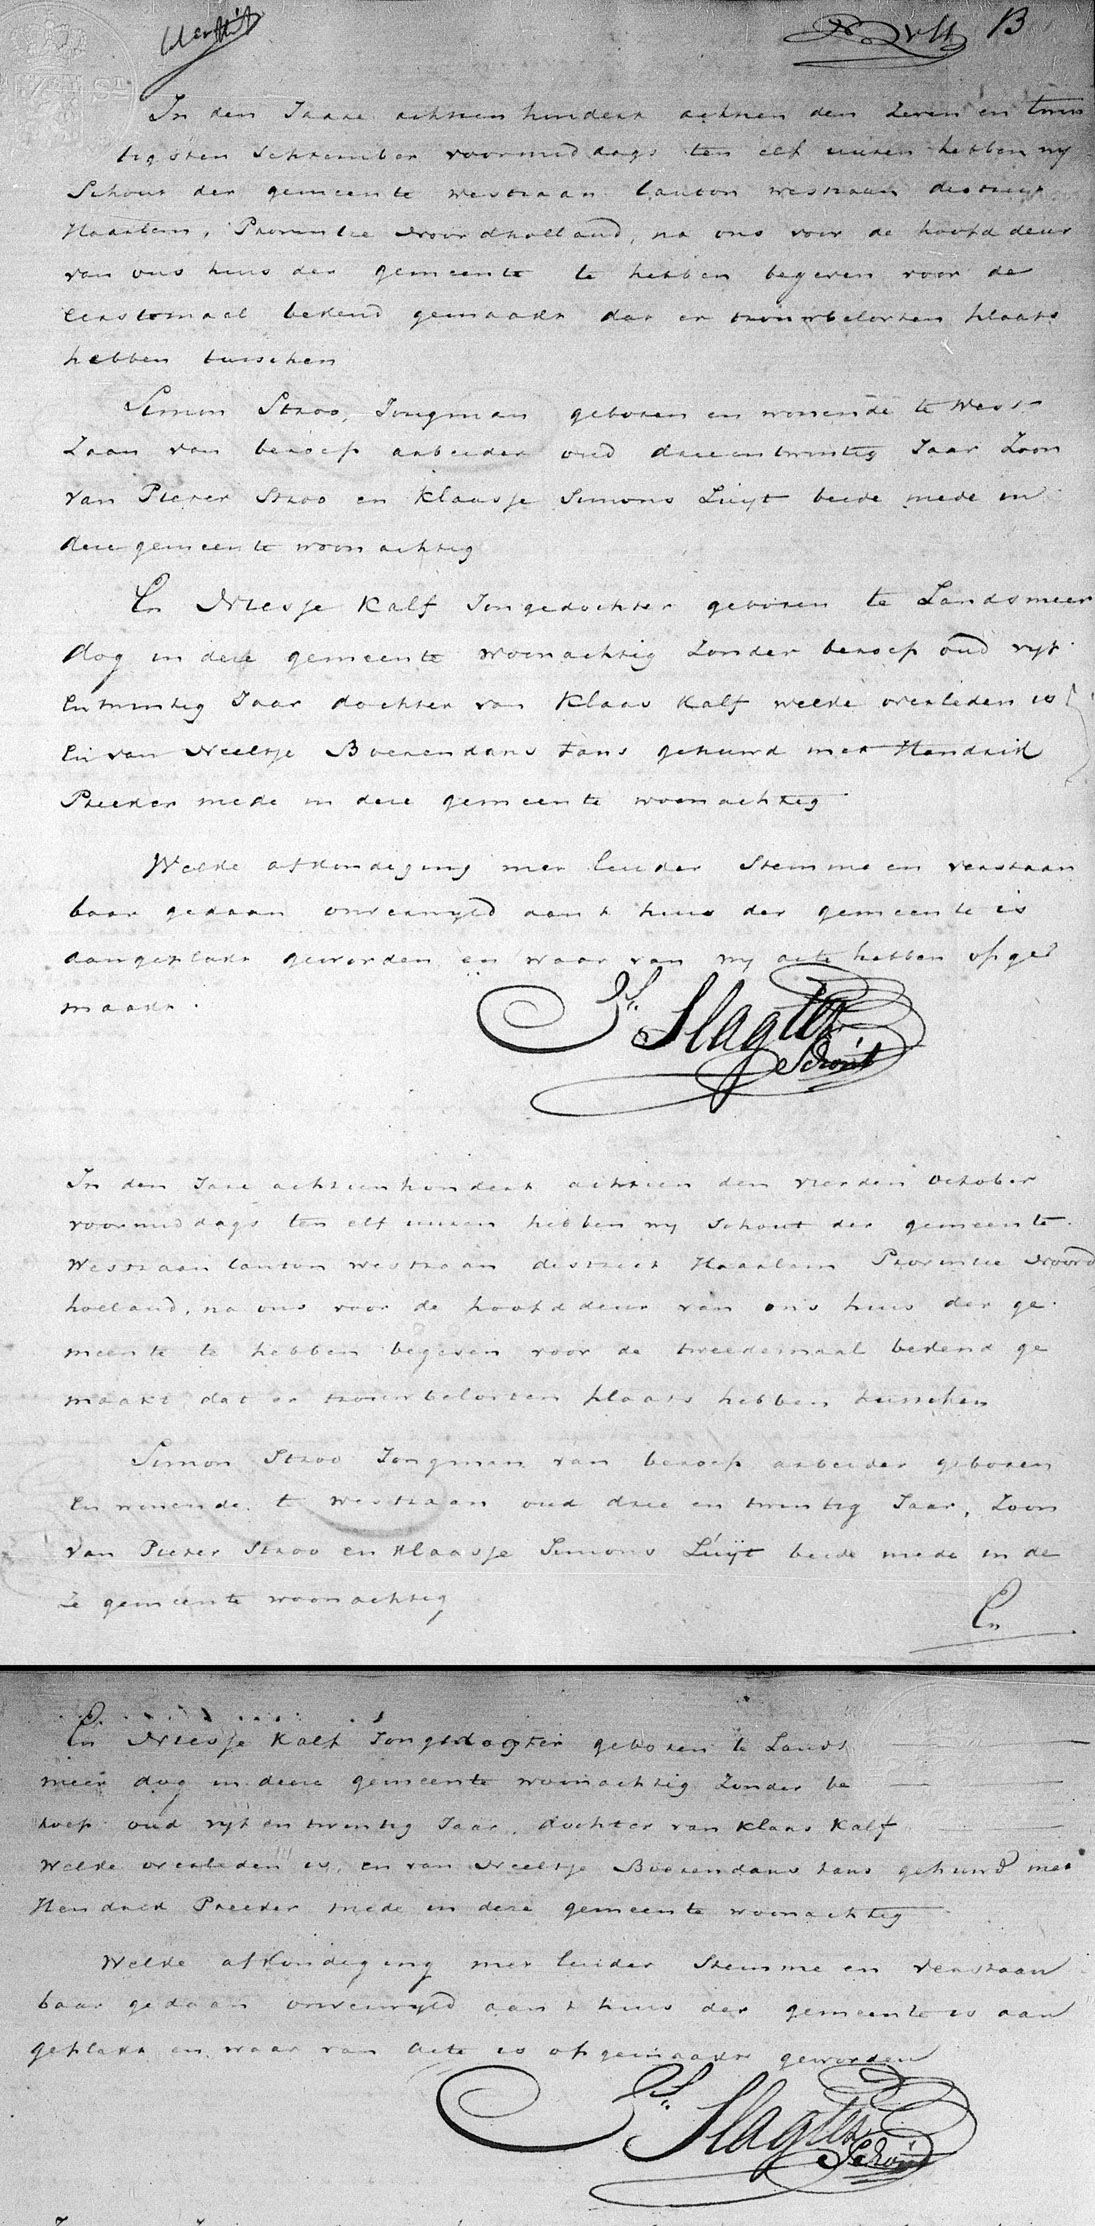 B
In den Jaare achtien hondert achtien den Zeven en twin
tigsten September voormiddags ten elf uuren hebben wy
Schout der gemeente westzaan Canton westzaan district
Haarlem, Provintie Noordholland, na ons voor de hoofddeur
van ons huis der gemeente te hebben begeven voor de
Eerstemaal bekend gemaakt dat er trouwbeloften plaats
hebben tusschen
Simon Stroo, Jongman geboren en wonende te West
Zaan van beroep arbeider oud drieentwintig Jaar Zoon
van Pieter Stroo en Klaasje Simons Luijt beide mede in
deze gemeente woonachtig
En Niesje Kalf Jongedochter geboren te Landsmeer
dog in deze gemeente woonachtig Zonder beroep oud vyf
Entwintig Jaar dochter van Klaas Kalf welke overleden is
En van Neeltje Boerendans tans gehuwd met Hendrik
Preeker mede in deze gemeente woonachtig
Welke afkondiging met luider Stemme en verstaan
baar gedaan onverwyld aan t huis der gemeente is
aangeplakt geworden en waar van wy acte hebben opge
maakt.
Js. Slagter
Schout
In den Jare achtienhondert achtien den vierden October
voormiddags ten elf uuren hebben wy Schout der gemeente
Westzaan Canton westzaan district Haarlem Provintie Noord
holland, na ons voor de hoofddeur van ons huis der ge
meente te hebben begeven voor de tweedemaal bekend ge
maakt dat er trouwbeloften plaats hebben tusschen
Simon Stroo Jongman van beroep arbeider geboren
En wonende te westzaan oud drie en twintig Jaar, Zoon
van Pieter Stroo en Klaasje Simons Luijt beide mede in de
ze gemeente woonachtig
En
En Niesje Kalf Jongedogter geboren te Lands
meer dog in deze gemeente woonachtig Zonder be
roep oud vyf en twintig Jaar, dochter van Klaas Kalf
Welke overleden is, en van Neeltje Boerendans tans gehuwd met
Hendrik Preeker mede in deze gemeente woonachtig
Welke afkondiging met luider Stemme en verstaan
baar gedaan onverwyld aan t huis der gemeente is aan
geplakt en waar van acte is opgemaakt geworden
Js. Slagter
Schout